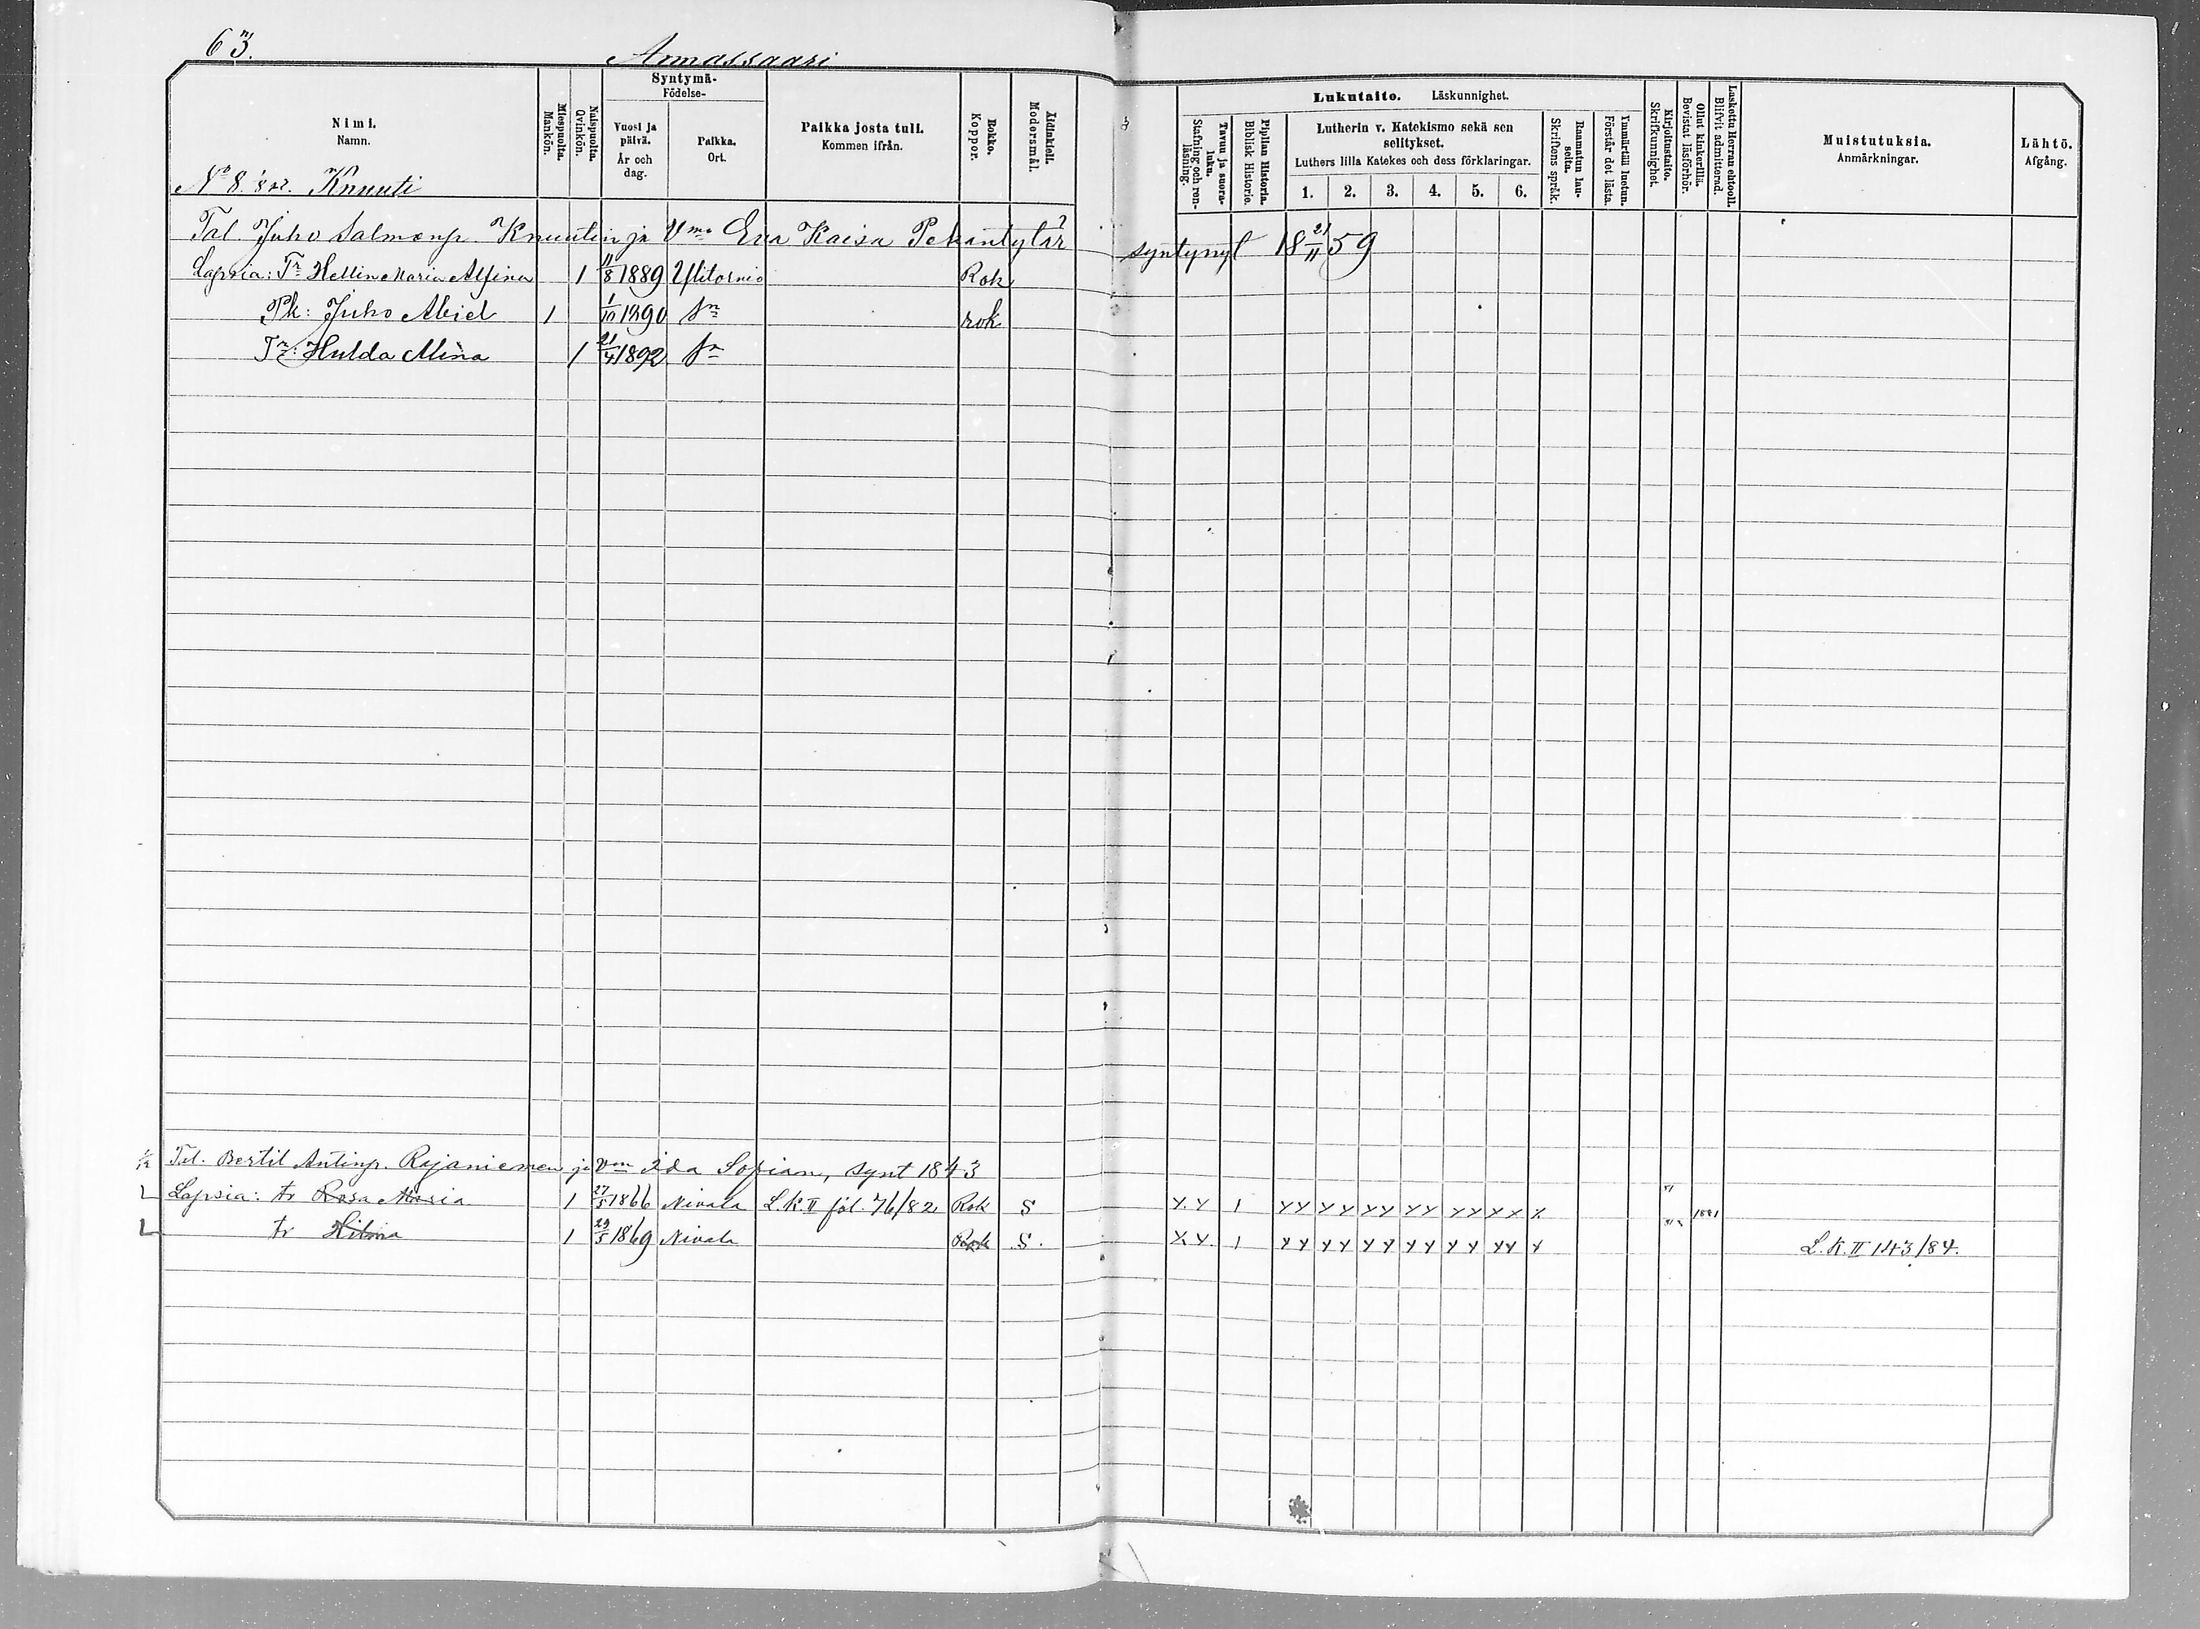 63.
Armassaari
Nimi.
Namn.
Miespuolta.
Mankön.
Naispuolta.
Qvinkön.
Syntymä-
Födelse-
Vuosi ja päivä.
År och dag.
Paikka.
Ort.
Paikka josta tuli.
Kommen ifrån.
Rokko.
Koppor.
Äidinkieli.
Modersmål.
Lukutaito. Läskunnighet.
Tavuu ja suora-luku.
Stafning och ren-läsning.
Piplian Historia.
Biblisk Historie.
Lutherin v. Katekismo sekä sen selitykset.
Luthers lilla Katekes och dess förklaringar.
1. 2. 3. 4. 5. 6.
Raamatun lau-seita.
Skriftens språk.
Ymmärtää luetun.
Förstår det lästa.
Kirjoitustaito.
Skrifkunnighet.
Ollut kinkerillä.
Bevistat läsförhör.
Laskettu Herran ehtooll.
Blifvit admitterad.
Muistutuksia.
Anmärkningar.
Lähtö.
Afgång.
No 8. Knuuti
Tal. Juho Salmonp. Knuutin ja Vmo Eva Kaisa Pekantytär syntynyt 18 21/11 59
Lapsia: Tr Hellin Maria Alfina 1 11/8 1889 Ylitornio Rok
Pk: Juho Abiel 1 1/10 1890 Sn rok
Tr: Hulda Mina 1 21/4 1892 Sn
Tal. Bertil Antinp. Rajaniemen ja Vmo Ida Sofian, synt 1843
Lapsia: tr Rosa Maria 1 27/5 1866 Nivala L.K. II fol. 76/82 Rok S Y Y 1 Y Y Y Y Y Y Y Y Y Y Y Y X 1881
tr Hilma 1 29/5 1869 Nivala Rok S. X Y 1 Y Y Y Y Y Y Y Y Y Y Y Y Y L.K. II 143/84.